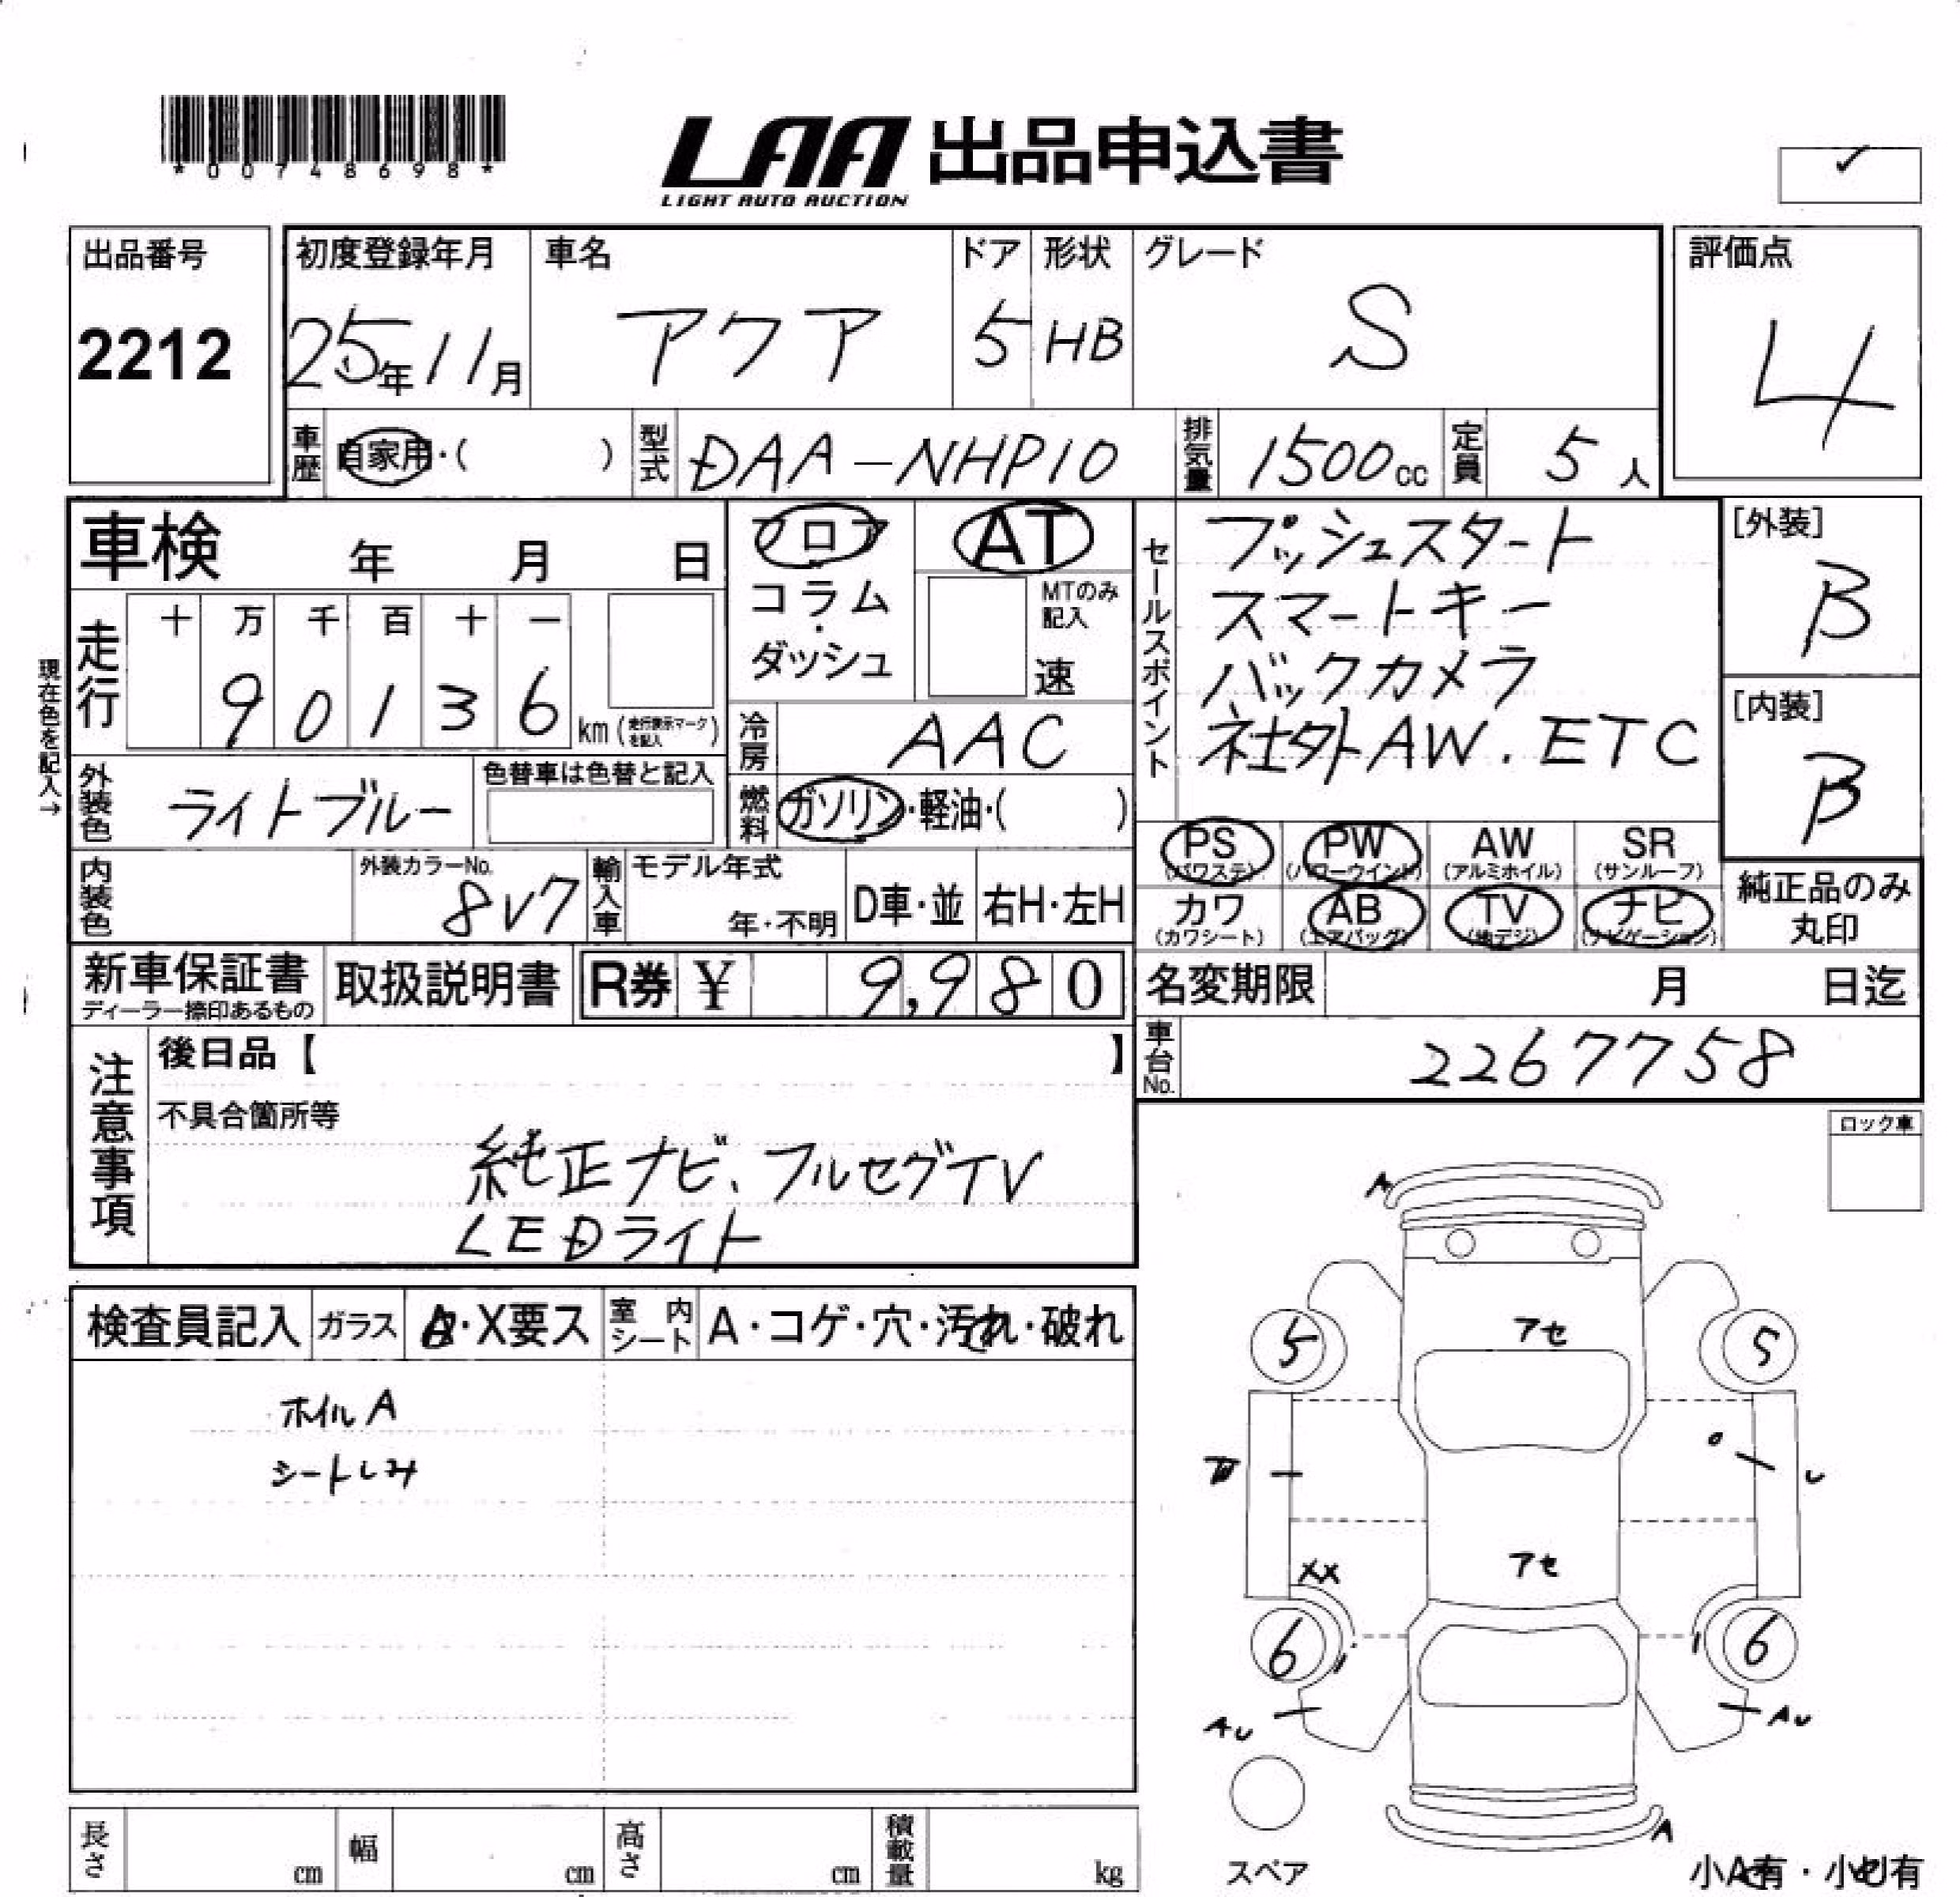 *00748698*
LAA 出品申込書
LIGHT AUTO AUCTION
✓
出品番号
2212
初度登録年月
25年11月
車名
アクア
ドア
5
形状
HB
グレード
S
評価点
4
車歴
自家用・( )
型式
DAA-NHP10
排気量
1500cc
定員
5人
車検 年 月 日
フロア
コラム
・
ダッシュ
AT
MTのみ
記入
速
セールスポイント
プッシュスタート
スマートキー
バックカメラ
社外AW.ETC
[外装]
B
[内装]
B
現在色を記入→
走行
十 万 千 百 十 一
9 0 1 3 6
km(走行表示マークを記入)
冷房
AAC
外装色
ライトブルー
色替車は色替と記入
燃料
ガソリン・軽油・( )
PS
(パワステ)
PW
(パワーウインド)
AW
(アルミホイル)
SR
(サンルーフ)
カワ
(カワシート)
AB
(エアバッグ)
TV
(地デジ)
ナビ
(ナビゲーション)
純正品のみ
丸印
内装色
外装カラーNo.
8V7
輸入車
モデル年式
年・不明
D車・並
右H・左H
新車保証書
ディーラー捺印あるもの
取扱説明書
R券 ¥ 9,980
名変期限 月 日迄
注意事項
後日品【 】
不具合箇所等
純正ナビ、フルセグTV
LEDライト
車台No.
2267758
ロック車
検査員記入
ガラス
・X要ス
室内シート
A・コゲ・穴・汚れ・破れ
ホイルA
シートしみ
A
アセ
5
5
U
アセ
XX
6
6
AU
AU
A
スペア
小A有・小U有
長さ
cm
幅
cm
高さ
cm
積載量
kg